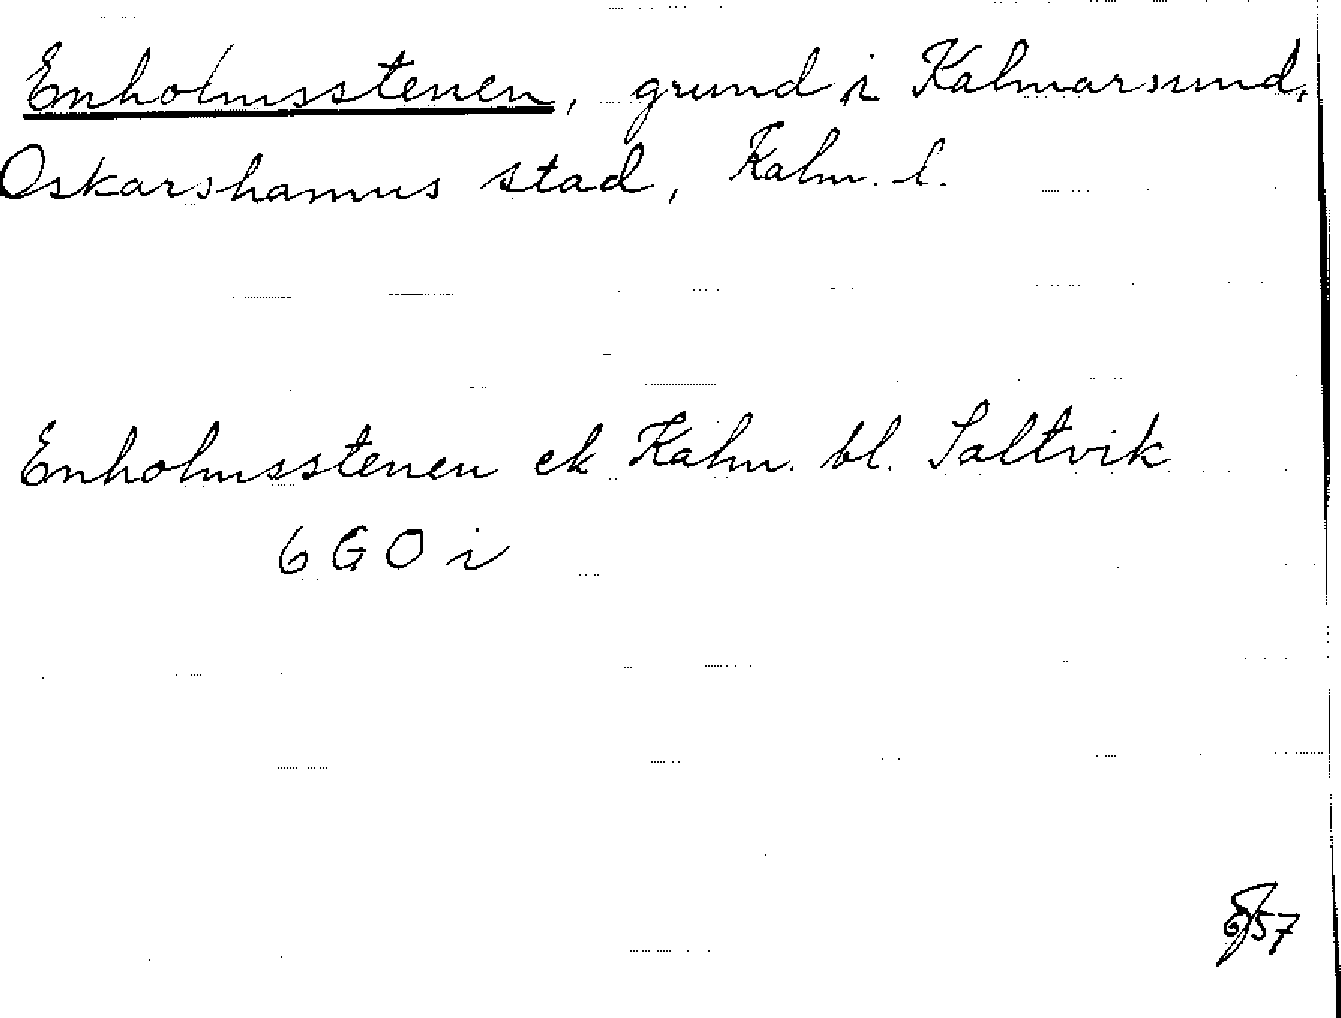 Enholmsstenen, grund i Kalmarsund,
Oskarshamns stad, Kalm. l.
Enholmsstenen ek Kalm. bl. Saltvik
6 G O i
57